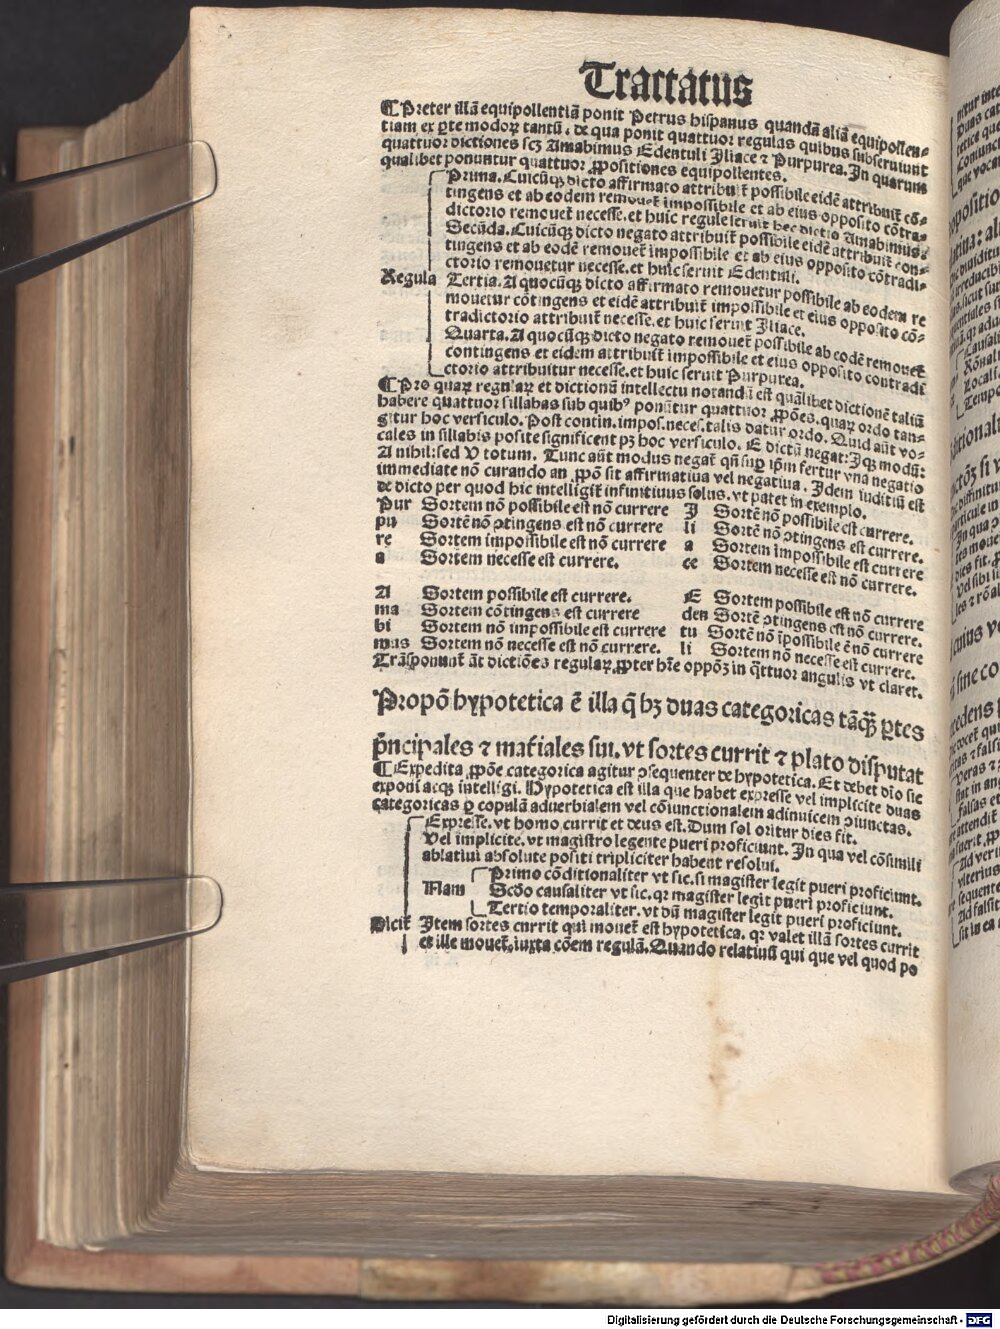 Tractatus
¶Preter illã equipollentiã ponit Petrus hispanus quandã aliã equipollen⸗
tiam ex ꝑte modoꝝ tantũ. de qua ponit quattuor regulas quibus subseruiunt
quattuor dictiones scꝫ Amabimus Edentuli Iliace ⁊ Purpurea. In quarum
qualibet ponuntur quattuor ꝓpositiones equipollentes.
Prima. Cuicũqꝫ dicto affirmato attribuit̃ possibile eidẽ attribuit̃ cõ⸗
tingens et ab eodem remouet̃ impossibile et ab eius opposito cõtra⸗
dictorio remouet̃ necesse. et huic regule seruit hec dictio Amabimus.
Secũda. Cuicũqꝫ dicto negato attribuit̃ possibile eidẽ attribuit̃ con⸗
tingens et ab eodẽ remouet̃ impossibile et ab eius opposito cõtradi⸗
ctorio remouetur necesse. et huic seruit Edentuli.
Regula Tertia. A quocũqꝫ dicto affirmato remouetur possibile ab eodem re
mouetur cõtingens et eidẽ attribuit̃ impossibile et eius opposito cõ⸗
tradictorio attribuit̃ necesse. et huic seruit Iliace.
Quarta. A quocũqꝫ dicto negato remouet̃ possibile ab eodẽ remouet̃
contingens et eidem attribuit̃ impossibile et eius opposito contradi
ctorio attribuitur necesse. et huic seruit Purpurea.
¶Pro quaꝝ regulaꝝ et dictionũ intellectu notandũ est quãlibet dictionẽ taliũ
habere quattuor sillabas sub quibꝰ ponũtur quattuor ꝓpões. quaꝝ ordo tan⸗
gitur hoc versiculo. Post contin. impos. neces. talis datur ordo. Quid aũt vo⸗
cales in sillabis posite significent pꝫ hoc versiculo. E dictũ negat: Iqꝫ modũ:
A nihil: sed V totum. Tunc aũt modus negat̃ qñ suꝑ ip̃m fertur vna negatio
immediate nõ curando an ꝓpõ sit affirmatiua vel negatiua. Idem iuditiũ est
de dicto per quod hic intelligit̃ infinitiuus solus. vt patet in exemplo.
Pur Sortem nõ possibile est nõ currere I Sortẽ nõ possibile est currere.
pu Sortẽ nõ ꝯtingens est nõ currere li Sortẽ nõ ꝯtingens est currere.
re Sortem impossibile est nõ currere a Sortem impossibile est currere
a Sortem necesse est currere. ce Sortem necesse est nõ currere.
A Sortem possibile est currere. E Sortem possibile est nõ currere
ma Sortem cõtingens est currere den Sortẽ ꝯtingens est nõ currere.
bi Sortem nõ impossibile est currere tu Sortẽ nõ ĩpossibile ẽ nõ currere
mus Sortem nõ necesse est nõ currere. li Sortem nõ necesse est currere.
Trãsponunt̃ aũt dictiões regulaꝝ ꝓpter hr̃e oppõꝫ in q̃ttuor angulis vt claret.
Propõ hypotetica ẽ illa q̃ hꝫ duas categoricas tãqꝫ̃ ꝑtes
p̃ncipales ⁊ mat̃iales sui. vt sortes currit ⁊ plato disputat
¶Expedita ꝓpõe categorica agitur ꝯsequenter de hypotetica. Et debet dĩo sic
exponi acqꝫ intelligi. Hypotetica est illa que habet expresse vel implicite duas
categoricas ꝑ copulã aduerbialem vel cõiunctionalem adinuicem ꝯiunctas.
Expresse. vt homo currit et deus est. Dum sol oritur dies fit.
Vel implicite. vt magistro legente pueri proficiunt. In qua vel cõsimili
ablatiui absolute positi tripliciter habent resolui.
Primo cõditionaliter vt sic. si magister legit pueri proficiunt.
Nam Scd̃o causaliter vt sic. qꝛ magister legit pueri proficiunt.
Tertio temporaliter. vt dũ magister legit pueri proficiunt.
Dicit̃ Item sortes currit qui mouet̃ est hypotetica. qꝛ valet illã sortes currit
et ille mouet̃. iuxta cõem regulã. Quando relatiuũ qui que vel quod po
Digitalisierung gefördert durch die Deutsche Forschungsgemeinschaft - DFG